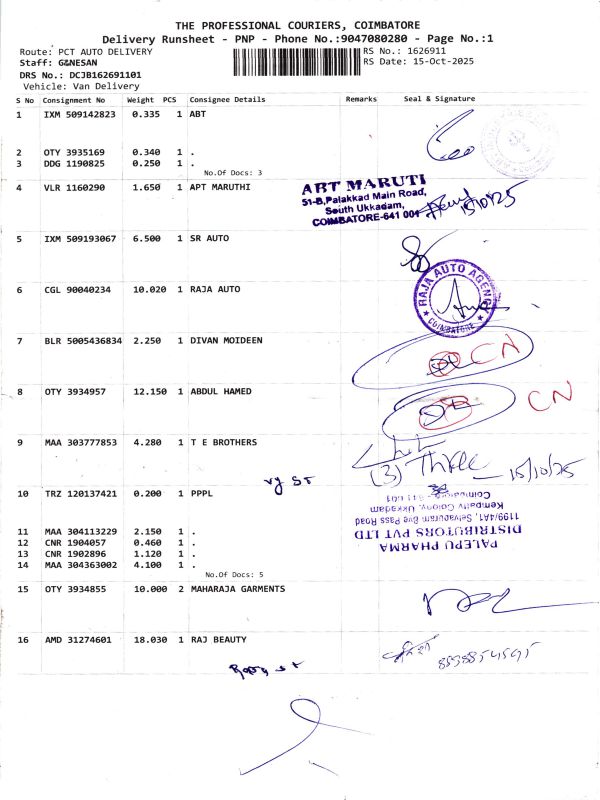 THE PROFESSIONAL COURIERS, COIMBATORE
Delivery Runsheet - PNP - Phone No.:9047080280 - Page No.:1
Route: PCT AUTO DELIVERY RS No.: 1626911
Staff: G&NESAN RS Date: 15-Oct-2025
DRS No.: DCJB162691101
Vehicle: Van Delivery
S No Consignment No Weight PCS Consignee Details Remarks Seal & Signature
1 IXM 509142823 0.335 1 ABT
2 OTY 3935169 0.340 1 .
3 DDG 1190825 0.250 1 .
No.Of Docs: 3
4 VLR 1160290 1.650 1 APT MARUTHI
ABT MARUTI
51-B,Palakkad Main Road,
South Ukkadam,
COIMBATORE-641 001
15/10/25
5 IXM 509193067 6.500 1 SR AUTO
6 CGL 90040234 10.020 1 RAJA AUTO
RAJA AUTO AGENCY
★ COIMBATORE ★
7 BLR 5005436834 2.250 1 DIVAN MOIDEEN
CN
8 OTY 3934957 12.150 1 ABDUL HAMED
CN
9 MAA 303777853 4.280 1 T E BROTHERS
(3) Three 15/10/25
vy st
10 TRZ 120137421 0.200 1 PPPL
PALEPU PHARMA
DISTRIBUTORS PVT LTD
1199/4A1, Selvapuram Bye Pass Road
Kempatty Colony, Ukkadam
Coimbatore - 641 001
11 MAA 304113229 2.150 1 .
12 CNR 1904057 0.460 1 .
13 CNR 1902896 1.120 1 .
14 MAA 304363002 4.100 1 .
No.Of Docs: 5
15 OTY 3934855 10.000 2 MAHARAJA GARMENTS
16 AMD 31274601 18.030 1 RAJ BEAUTY